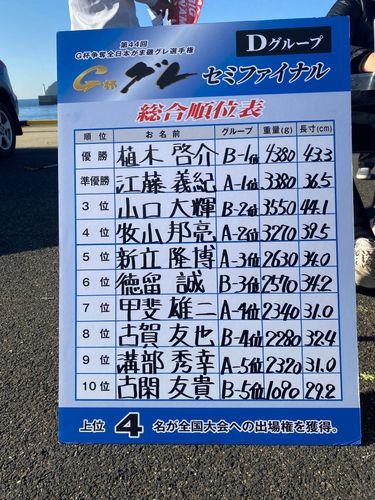 第44回
G杯争奪全日本がま磯グレ選手権
Dグループ
G杯 グレ セミファイナル
総合順位表
順位 お名前 グループ 重量(g) 長寸(cm)
優勝 植木 啓介 B-1位 4380 43.3
準優勝 江藤 義紀 A-1位 3380 36.5
3位 山口 大輝 B-2位 3550 44.1
4位 牧山 邦亮 A-2位 3270 39.5
5位 新立 隆博 A-3位 2630 34.0
6位 徳留 誠 B-3位 2570 34.2
7位 甲斐 雄二 A-4位 2340 31.0
8位 古賀 友也 B-4位 2280 32.4
9位 溝部 秀幸 A-5位 2320 31.0
10位 古閑 友貴 B-5位 1090 29.2
上位 4 名が全国大会への出場権を獲得。